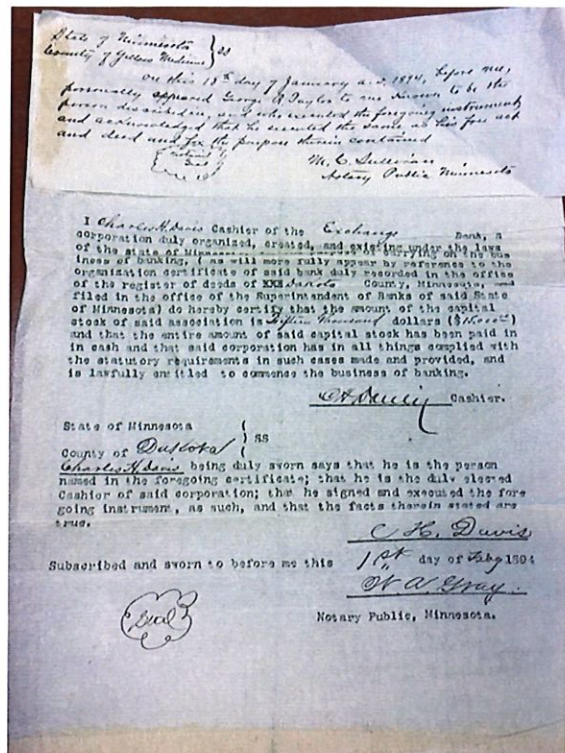 State of Minnesota } SS
County of Yellow Medicine
On this 18th day of January a.d. 1894, before me,
personally appeared George A Taylor to me known to be the
person described in, and who executed the foregoing instrument
and acknowledged that he executed the same as his free act
and deed and for the purpose therein contained
M. C. Sullivan
Notary Public Minnesota
I Charles H. Davis Cashier of the Exchange Bank, a
corporation duly organized, created, and existing under the laws
of the state of Minnesota carrying on the bus
iness of banking, ( as will more fully appear by reference to the
organization certificate of said bank duly recorded in the office
of the register of deeds of XXX Dakota County, Minnesota, and
filed in the office of the Superintendent of Banks of said State
of Minnesota) do hereby certify that the amount of the capital
stock of said association is Fifteen Thousand dollars ($15,000)
and that the entire amount of said capital stock has been paid in
in cash and that said corporation has in all things complied with
the statutory requirements in such cases made and provided, and
is lawfully entitled to commence the business of banking.
C H Davis Cashier.
State of Minnesota (
) SS
County of Dakota (
Charles H. Davis being duly sworn says that he is the person
named in the foregoing certificate; that he is the duly elected
Cashier of said corporation; that he signed and executed the fore
going instrument, as such, and that the facts therein stated are
true.
C. H. Davis
Subscribed and sworn to before me this 1st day of Feby 1894
W A. Gray.
Seal
Notary Public, Minnesota.